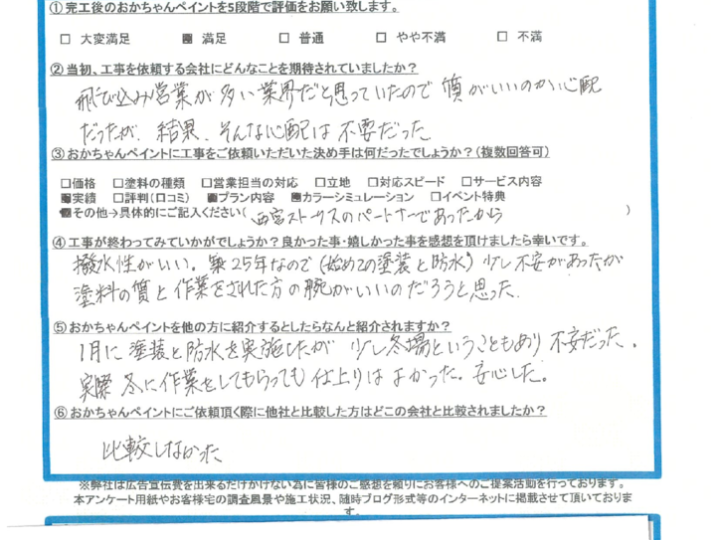 ①完工後のおかちゃんペイントを5段階で評価をお願い致します。
□ 大変満足 ■ 満足 □ 普通 □ やや不満 □ 不満
②当初、工事を依頼する会社にどんなことを期待されていましたか？
飛び込み営業が多い業界だと思っていたので 質がいいのか心配
だったが、結果、そんな心配は不要だった
③おかちゃんペイントに工事をご依頼いただいた決め手は何だったでしょうか？（複数回答可）
□価格 □塗料の種類 □営業担当の対応 □立地 □対応スピード □サービス内容
■実績 □評判（口コミ） ■プラン内容 ■カラーシミュレーション □イベント特典
■その他→具体的にご記入ください（ 西宮ストークスのパートナーであったから ）
④工事が終わってみていかがでしょうか？良かった事・嬉しかった事を感想を頂けましたら幸いです。
撥水性がいい。築25年なので（始めての塗装と防水）少し不安があったが
塗料の質と作業をされた方の腕がいいのだろうと思った。
⑤おかちゃんペイントを他の方に紹介するとしたらなんと紹介されますか？
1月に塗装と防水を実施したが 少し冬場ということもあり 不安だった。
実際 冬に作業をしてもらっても 仕上りは よかった。安心した。
⑥おかちゃんペイントにご依頼頂く際に他社と比較した方はどこの会社と比較されましたか？
比較しなかった
※弊社は広告宣伝費を出来るだけかけない為に皆様のご感想を頼りにお客様へのご提案活動を行っております。
本アンケート用紙やお客様宅の調査風景や施工状況、随時ブログ形式等のインターネットに掲載させて頂いております。